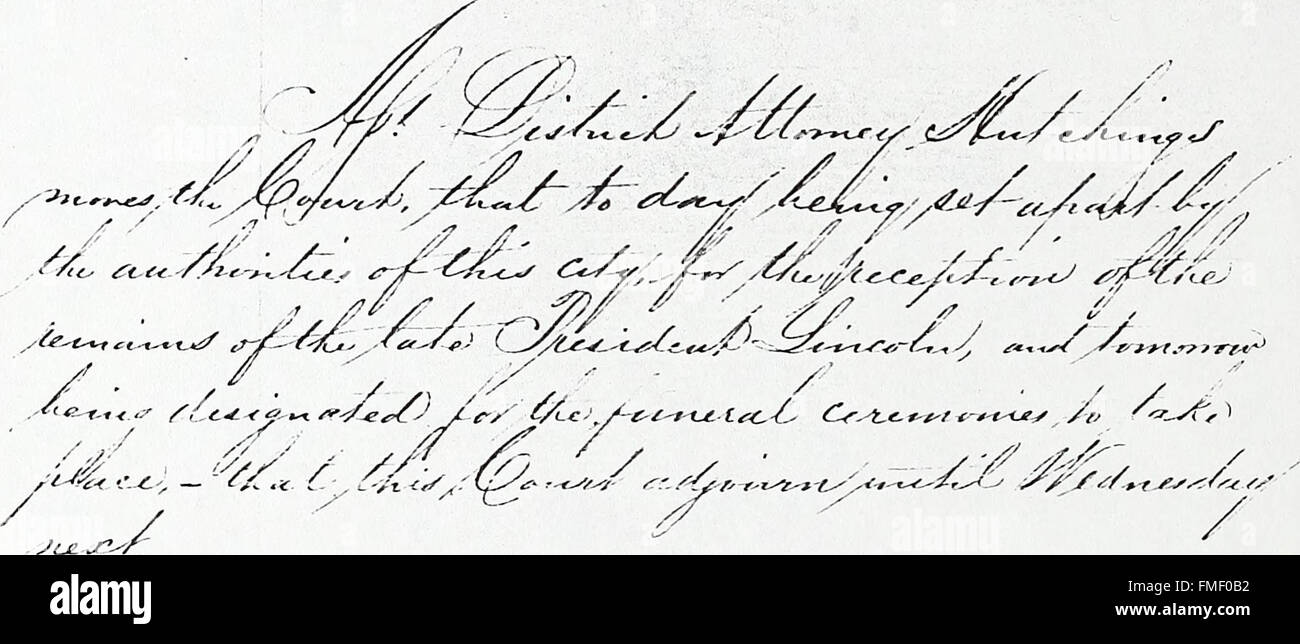 Asst. District Attorney Hutchings
moves the Court, that to day being set apart by
the authorities of this city, for the reception of the
remains of the late President Lincoln, and tomorrow
being designated for the funeral ceremonies to take
place, – that this Court adjourn until Wednesday
next
alamy
Image ID: FMF0B2
www.alamy.com